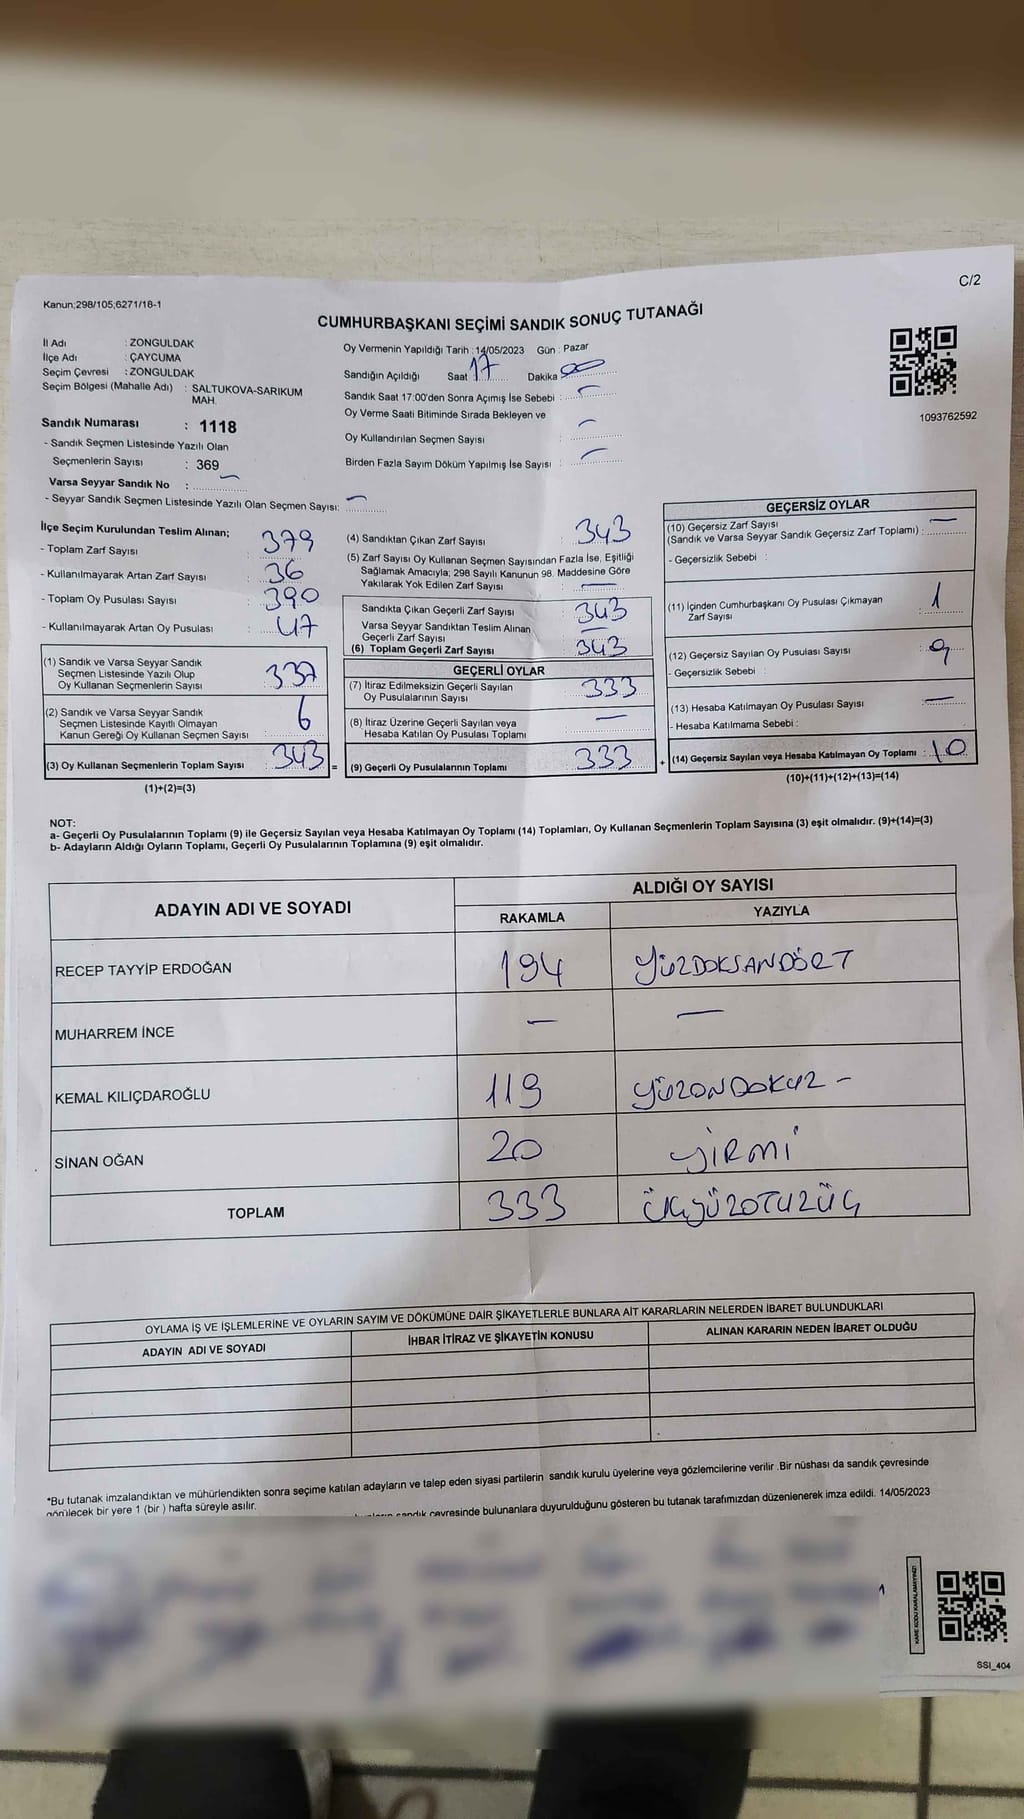 C/2
Kanun;298/105;6271/18-1
CUMHURBAŞKANI SEÇİMİ SANDIK SONUÇ TUTANAĞI
İl Adı : ZONGULDAK
İlçe Adı : ÇAYCUMA
Seçim Çevresi : ZONGULDAK
Seçim Bölgesi (Mahalle Adı) : SALTUKOVA-SARIKUM
MAH.
Sandık Numarası : 1118
- Sandık Seçmen Listesinde Yazılı Olan
Seçmenlerin Sayısı : 369
Varsa Seyyar Sandık No : —
- Seyyar Sandık Seçmen Listesinde Yazılı Olan Seçmen Sayısı: —
Oy Vermenin Yapıldığı Tarih : 14/05/2023 Gün : Pazar
Sandığın Açıldığı Saat 17 Dakika 00
Sandık Saat 17:00'den Sonra Açımış İse Sebebi : —
Oy Verme Saati Bitiminde Sırada Bekleyen ve
Oy Kullandırılan Seçmen Sayısı : —
Birden Fazla Sayım Döküm Yapılmış İse Sayısı : —
1093762592
İlçe Seçim Kurulundan Teslim Alınan;
- Toplam Zarf Sayısı : 379
- Kullanılmayarak Artan Zarf Sayısı : 36
- Toplam Oy Pusulası Sayısı : 390
- Kullanılmayarak Artan Oy Pusulası : 47
(1) Sandık ve Varsa Seyyar Sandık
Seçmen Listesinde Yazılı Olup
Oy Kullanan Seçmenlerin Sayısı : 337
(2) Sandık ve Varsa Seyyar Sandık
Seçmen Listesinde Kayıtlı Olmayan
Kanun Gereği Oy Kullanan Seçmen Sayısı : 6
(3) Oy Kullanan Seçmenlerin Toplam Sayısı : 343
(1)+(2)=(3)
(4) Sandıktan Çıkan Zarf Sayısı : 343
(5) Zarf Sayısı Oy Kullanan Seçmen Sayısından Fazla İse, Eşitliği
Sağlamak Amacıyla; 298 Sayılı Kanunun 98. Maddesine Göre
Yakılarak Yok Edilen Zarf Sayısı : —
Sandıkta Çıkan Geçerli Zarf Sayısı : 343
Varsa Seyyar Sandıktan Teslim Alınan
Geçerli Zarf Sayısı : —
(6) Toplam Geçerli Zarf Sayısı : 343
GEÇERLİ OYLAR
(7) İtiraz Edilmeksizin Geçerli Sayılan
Oy Pusulalarının Sayısı : 333
(8) İtiraz Üzerine Geçerli Sayılan veya
Hesaba Katılan Oy Pusulası Toplamı : —
= (9) Geçerli Oy Pusulalarının Toplamı : 333
GEÇERSİZ OYLAR
(10) Geçersiz Zarf Sayısı
(Sandık ve Varsa Seyyar Sandık Geçersiz Zarf Toplamı) : —
- Geçersizlik Sebebi :
(11) İçinden Cumhurbaşkanı Oy Pusulası Çıkmayan
Zarf Sayısı : 1
(12) Geçersiz Sayılan Oy Pusulası Sayısı : 9
- Geçersizlik Sebebi :
(13) Hesaba Katılmayan Oy Pusulası Sayısı : —
- Hesaba Katılmama Sebebi :
+ (14) Geçersiz Sayılan veya Hesaba Katılmayan Oy Toplamı : 10
(10)+(11)+(12)+(13)=(14)
NOT:
a- Geçerli Oy Pusulalarının Toplamı (9) ile Geçersiz Sayılan veya Hesaba Katılmayan Oy Toplamı (14) Toplamları, Oy Kullanan Seçmenlerin Toplam Sayısına (3) eşit olmalıdır. (9)+(14)=(3)
b- Adayların Aldığı Oyların Toplamı, Geçerli Oy Pusulalarının Toplamına (9) eşit olmalıdır.
ADAYIN ADI VE SOYADI ALDIĞI OY SAYISI
RAKAMLA YAZIYLA
RECEP TAYYİP ERDOĞAN 194 YÜZDOKSANDÖRT
MUHARREM İNCE — —
KEMAL KILIÇDAROĞLU 119 YÜZONDOKUZ -
SİNAN OĞAN 20 YİRMİ
TOPLAM 333 ÜÇYÜZOTUZÜÇ
OYLAMA İŞ VE İŞLEMLERİNE VE OYLARIN SAYIM VE DÖKÜMÜNE DAİR ŞİKAYETLERLE BUNLARA AİT KARARLARIN NELERDEN İBARET BULUNDUKLARI
ADAYIN ADI VE SOYADI İHBAR İTİRAZ VE ŞİKAYETİN KONUSU ALINAN KARARIN NEDEN İBARET OLDUĞU
*Bu tutanak imzalandıktan ve mühürlendikten sonra seçime katılan adayların ve talep eden siyasi partilerin sandık kurulu üyelerine veya gözlemcilerine verilir .Bir nüshası da sandık çevresinde
görülecek bir yere 1 (bir ) hafta süreyle asılır.
sandık çevresinde bulunanlara duyurulduğunu gösteren bu tutanak tarafımızdan düzenlenerek imza edildi. 14/05/2023
KARE KODU KARALAMAYINIZ!
SSI_404